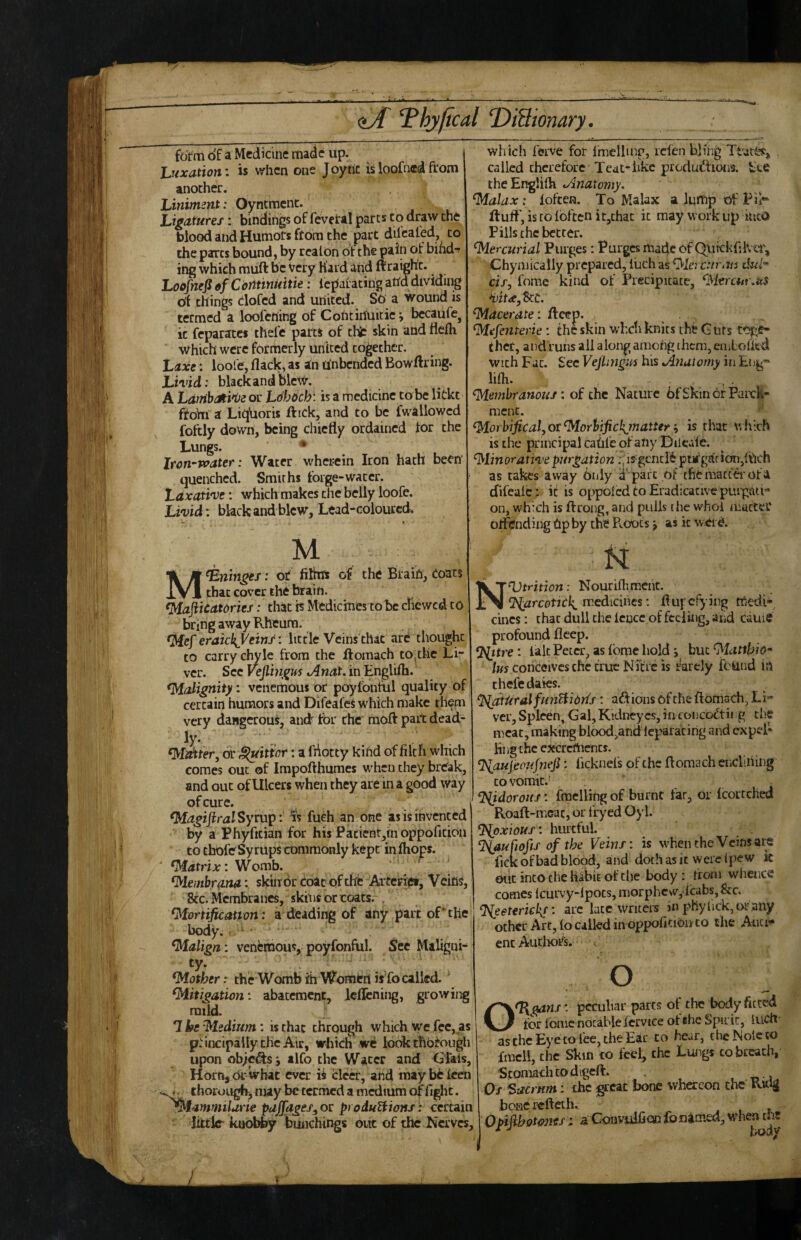 A Physical Dictionary.
form of a Medicine made up.
Luxation: is when one Joynt is loosned from
another.
Liniment: Oyntment.
Ligatures: bindings of several parts to draw the
blood and Humors from the part diseased, to
the parts bound, by reason of the pain of bind-
ing which must be very hard and straight.
Loosness of Continuitie: separating and dividing
of things closed and united. So a wound is
termed a loosening of Continuitie; because,
it separates these parts of the skin and flesh
which were formerly united together.
Laxe: loose, slack, as an unbended Bowstring.
Livid: black and blew.
A Lambative or Lohoch: is a medicine to be lickt
from a Liquoris stick, and to be swallowed
softly down, being chiefly ordained for the
Lungs.
Iron-water: Water wherein Iron hath been
quenched. Smiths forge-water.
Laxative: which makes the belly loose.
Livid: black and blew, Lead-coloured.
M
MEninges: or films of the Brain, Coats
that cover the brain.
Masticatories: that is Medicines to be chewed to
bring away Rheum.
Meseraick Veins: little Veins that are thought
to carry chyle from the stomach to the Li-
ver. See Veslingus Anat. in English.
Malignity: venemous or poysonful quality of
certain humors and Diseases which make them
very dangerous, and for the most part dead-
ly.
Matter, or Quittor: a snotty kind of filth which
comes out of Imposthumes when they break,
and out of Ulcers when they are in a good way
of cure.
Magistral Syrup: is such an one as is invented
by a Physitian for his Patient, in opposition
to those Syrups commonly kept in shops.
Matrix: Womb.
Membrana: skin or coat of the Arteries, Veins,
&c. Membranes, skins or coats.
Mortification: a deading of any part of the
body.
Malign: venemous, poysonful. See Maligni-
ty.
Mother: the Womb in Women is so called.
Mitigation: abatement, lessening, growing
mild.
The Medium: is that through which we see, as
principally the Air, which we look thorough
upon objects; also the Water and Glass,
Horn, or what ever is cleer, and may be seen
thorough, may be termed a medium of sight.
Mammilarie passages, or productions: certain
little knobby bunchings out of the Nerves,
which serve for smelling, resembling Teates,
called therefore Teat-like productions. See
the English Anatomy.
Malax: soften. To Malax a lump of Pil-
stuff, is to soften it, that it may work up into
Pills the better.
Mercurial Purges: Purges made of Quicksilver,
Chymically prepared, such as Mercurius dul-
cis, some kind of Precipitate, Mercurius
vitæ, &c.
Macerate: steep.
Mesenterie: the skin which knits the Guts toge-
ther, and runs all along among them, embossed
with Fat. See Veslingus his Anatomy in Eng-
lish.
Membranous: of the Nature of Skin or Parch-
ment.
Morbifical, or Morbifick matter; is that which
is the principal cause of any Disease.
Minorative purgation: is gentle purgation, such
as takes away only a part of the matter of a
disease: it is opposed to Eradicative purgati-
on, which is strong, and pulls the whol matter
offending up by the Roots; as it were.
N
NUtrition: Nourishment.
Narcotick medicines: stupefying medi-
cines: that dull the sence of feeling, and cause
profound sleep.
Nitre: salt Peter, as some hold; but Matthio-
lus conceives the true Nitre is rarely found in
these daies.
Natural functions: actions of the stomach, Li-
ver, Spleen, Gal, Kidneyes, in concocting the
meat, making blood, and separating and expel-
ling the excrements.
Naujeousness: sickness of the stomach enclining
to vomit.
Nidorous: smelling of burnt fat, or scortched
Roast-meat, or fryed Oyl.
Noxious: hurtful.
Nausiosis of the Veins: is when the Veins are
sick of bad blood, and doth as it were spew it
out into the habit of the body: from whence
comes scurvy-spots, morphew, scabs, &c.
Neetericks: are late writers in physick, or any
other Art, so called in opposition to the Anci-
ent Authors.
O
ORgans: peculiar parts of the body fitted
for some notable service of the Spirit, such
as the Eye to see, the Ear to hear, the Nose to
smell, the Skin to feel, the Lungs to breath,
Stomach to digest.
Os Sacrum: the great bone whereon the Ridg
bone resteth.
Opisthotones: a Convulsion so named, when the
body